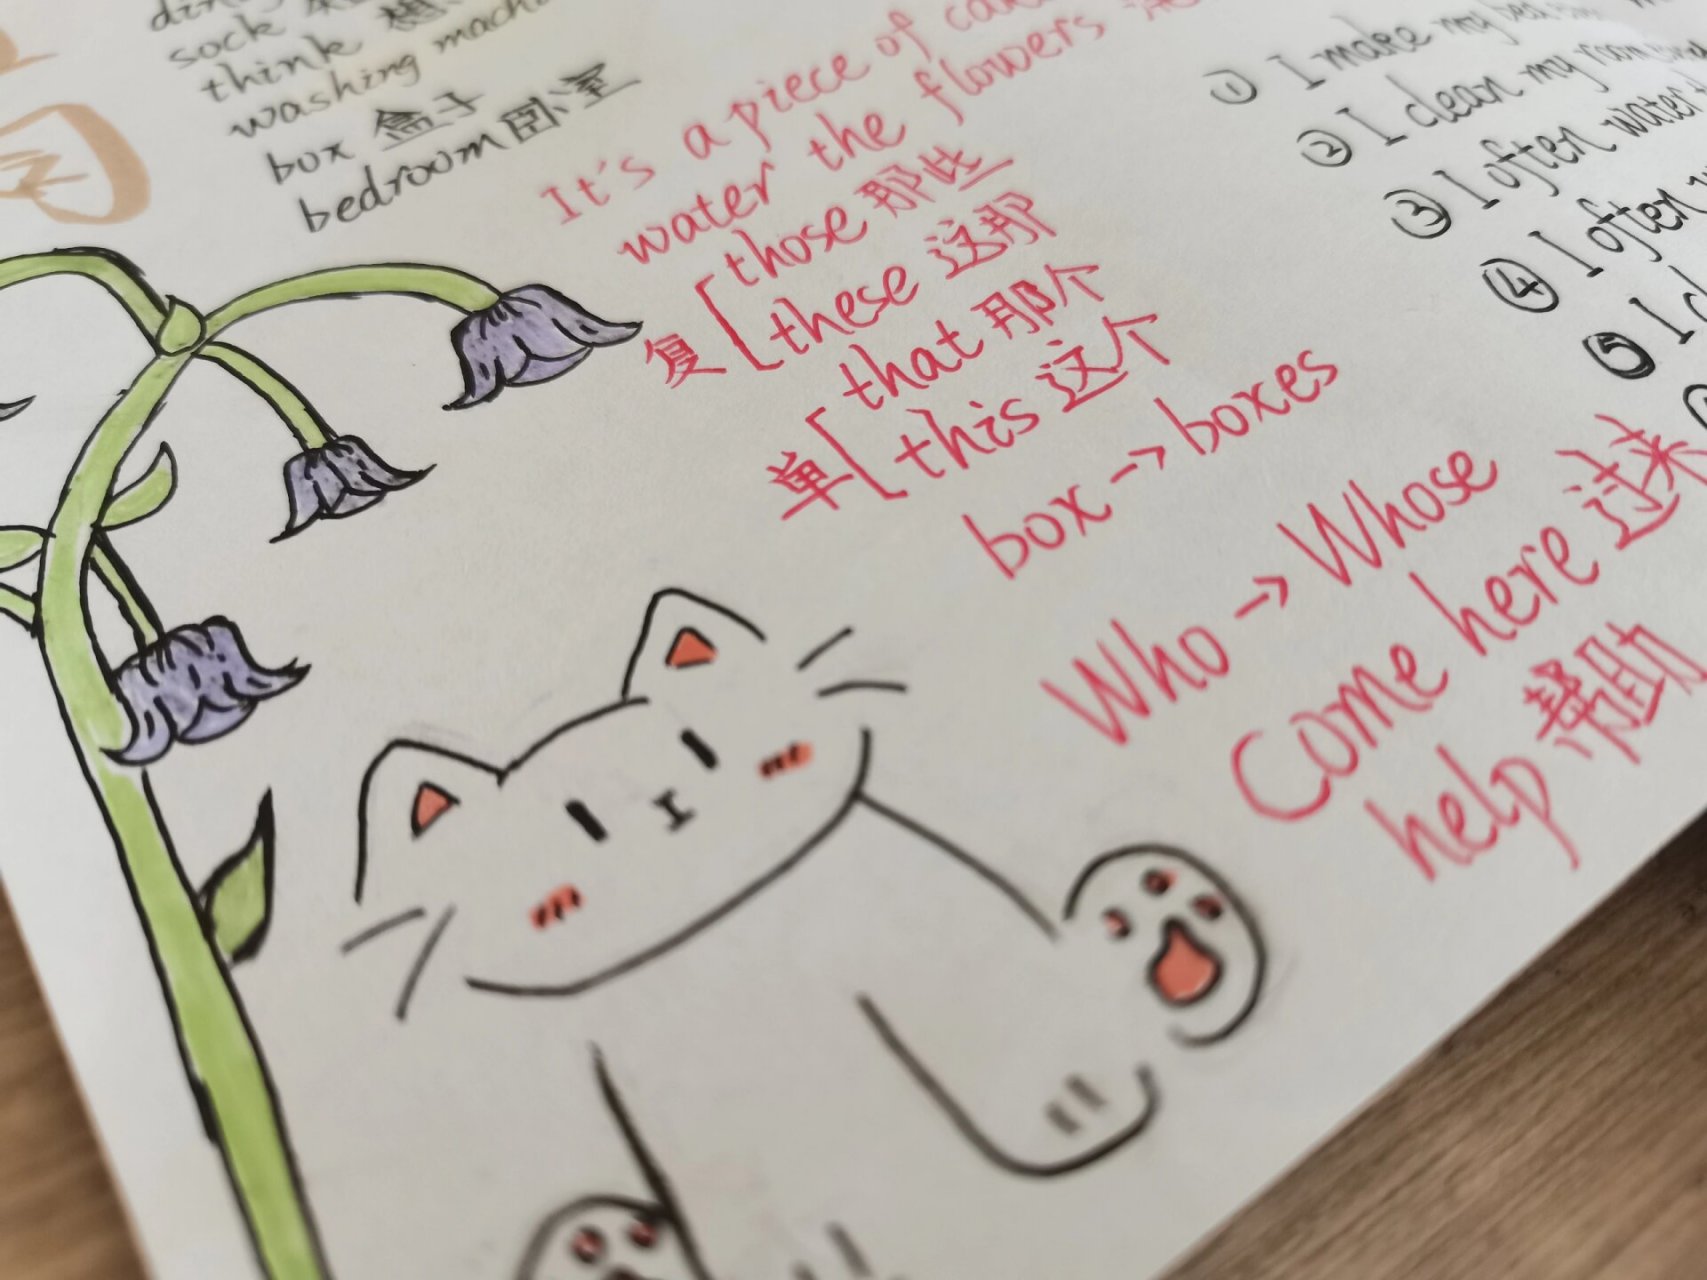 sock
think
washing
box 盒子
bedroom 卧室
It's a piece of
water the flowers
复 those 那些
these 这那
单 that 那个
this 这个
box → boxes
Who → Whose
Come here 过来
help 帮助
① I make my bed
② I clean my room
③ I often water
④ I often
⑤ I